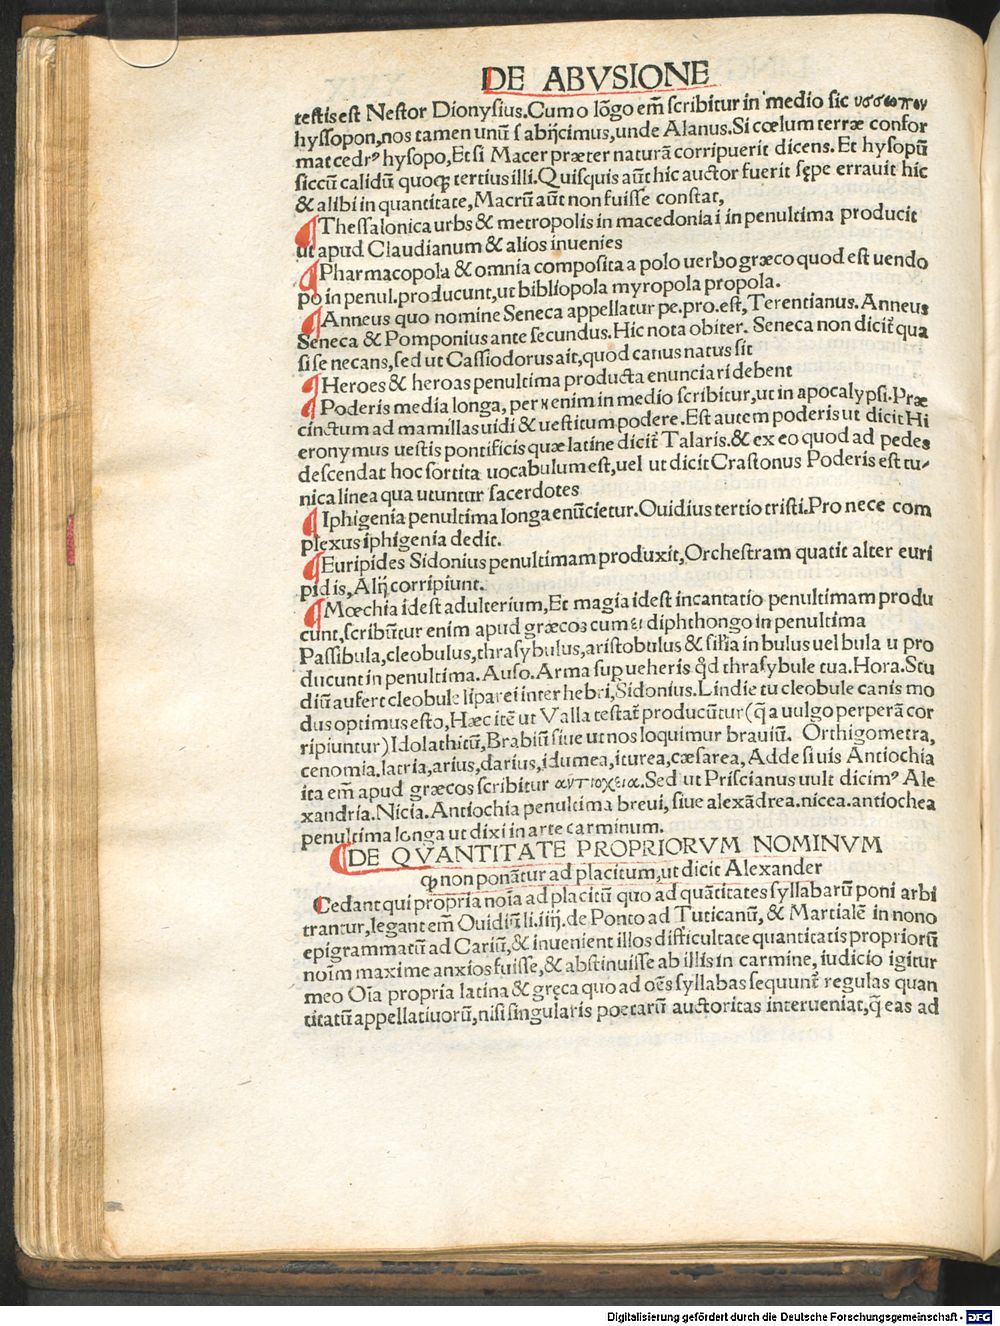 DE ABVSIONE
testis est Nestor Dionysius. Cum o lõgo em̃ scribitur in medio sic υσσωπου
hyssopon, nos tamen unũ s abijcimus, unde Alanus. Si cœlum terræ confor
mat cedrꝰ hysopo, Et si Macer præter naturã corripuerit dicens. Et hysopũ
siccũ calidũ quoqꝫ tertius illi. Quisquis aũt hic auctor fuerit sępe errauit hic
& alibi in quantitate, Macrũ aũt non fuisse constat,
¶ Thessalonica urbs & metropolis in macedonia i in penultima producit
ut apud Claudianum & alios inuenies
¶ Pharmacopola & omnia composita a polo uerbo græco quod est uendo
po in penul. producunt, ut bibliopola myropola propola.
¶ Anneus quo nomine Seneca appellatur pe. pro. est, Terentianus. Anneus
Seneca & Pomponius ante secundus. Hic nota obiter. Seneca non dicit̃ qua
si se necans, sed ut Cassiodorus ait, quod canus natus sit
¶ Heroes & heroas penultima producta enunciari debent
¶ Poderis media longa, per η enim in medio scribitur, ut in apocalypsi. Præ
cinctum ad mamillas uidi & uestitum podere. Est autem poderis ut dicit Hi
eronymus uestis pontificis quæ latine dicit̃ Talaris. & ex eo quod ad pedes
descendat hoc sortita uocabulum est, uel ut dicit Crastonus Poderis est tu-
nica linea qua utuntur sacerdotes
¶ Iphigenia penultima longa enũcietur. Ouidius tertio tristi. Pro nece com
plexus iphigenia dedit.
¶ Euripides Sidonius penultimam produxit, Orchestram quatit alter euri
pidis, Alij corripiunt.
¶ Mœchia idest adulterium, Et magia idest incantatio penultimam produ
cunt, scribũtur enim apud græcos cum ει diphthongo in penultima
Passibula, cleobulus, thrasybulus, aristobulus & sil̃ia in bulus uel bula u pro
ducunt in penultima. Auso. Arma superueheris qd̃ thrasybule tua. Hora. Stu
diũ aufert cleobule liparei inter hebri, Sidonius. Lindie tu cleobule canis mo
dus optimus esto, Hæc itẽ ut Valla testat̃ producũtur (q̃ a uulgo perperã cor
ripiuntur) Idolathitũ, Brabiũ siue ut nos loquimur brauiũ. Orthigometra,
cenomia, latria, arius, darius, idumea, iturea, cæsarea, Adde si uis Antiochia
ita em̃ apud græcos scribitur αντιοχεια. Sed ut Priscianus uult dicimꝰ Ale
xandria. Nicia. Antiochia penultima breui, siue alexãdrea. nicea. antiochea
penultima longa ut dixi in arte carminum.
¶ DE QVANTITATE PROPRIORVM NOMINVM
ꝙ non ponãtur ad placitum, ut dicit Alexander
¶ Cedant qui propria noĩa ad placitũ quo ad quãtitates syllabarũ poni arbi
trantur, legant em̃ Ouidiũ li. iiij. de Ponto ad Tuticanũ, & Martialẽ in nono
epigrammatũ ad Cariũ, & inuenient illos difficultate quantitatis propriorũ
noĩm maxime anxios fuisse, & abstinuisse ab illis in carmine, iudicio igitur
meo Oĩa propria latina & gręca quo ad oẽs syllabas sequunt̃ regulas quan
titatũ appellatiuorũ, nisi singularis poetarũ auctoritas interueniat, q̃ eas ad
Digitalisierung gefördert durch die Deutsche Forschungsgemeinschaft - DFG